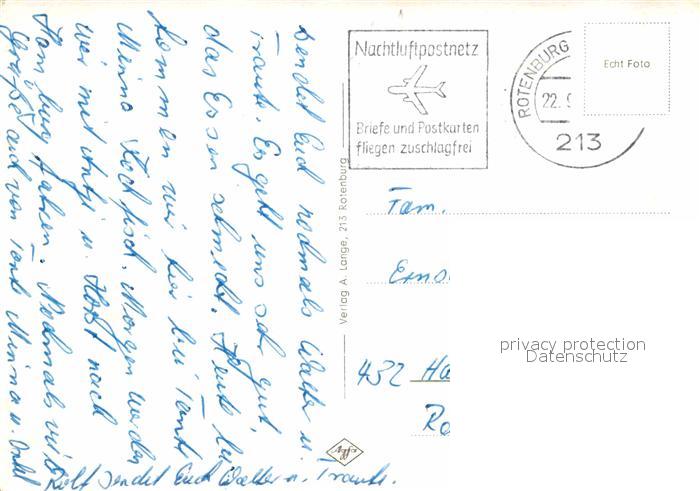 Nachtluftpostnetz
Briefe und Postkarten
fliegen zuschlagfrei
ROTENBURG
22. 9
213
Echt Foto
Fam.
Erns
432 Ha
Ro
privacy protection
Datenschutz
Verlag A. Lange, 213 Rotenburg
sendet Euch nochmals Walter u.
Traute. Es geht uns sehr gut
das Essen schmeckt. Heute
kommen wir hier bei Tante
Minna Kochfisch. Morgen werden
wir mit Antje u. Horst nach
Hamburg fahren. Nochmals viele
Grüße auch von Tante Minna u. Onkel
sendet Euch Walter u. Traute.